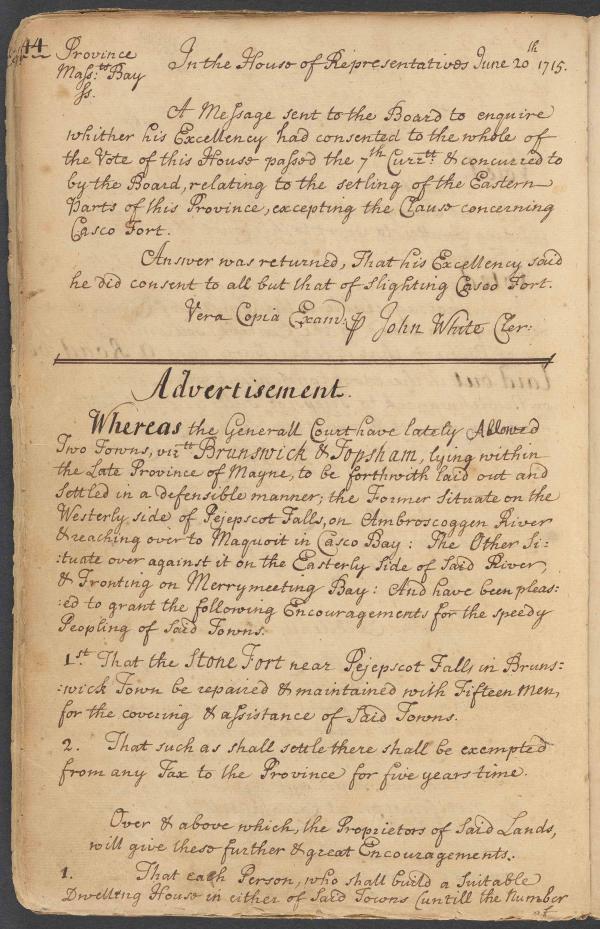 44
Province
Mass:ts Bay
ss.
In the House of Representatives June 20th 1715.
A Message sent to the Board to enquire
whither his Excellency had consented to the whole of
the Vote of this House passed the 7th Currtt. & concurred to
by the Board, relating to the setling of the Eastern
Parts of this Province, excepting the Clause concerning
Casco Fort.
Answer was returned, That his Excellency said
he did consent to all but that of Slighting Casco Fort.
Vera Copia Exam: ⅌ John White Cler:
Advertisement.
Whereas the Generall Court have lately Allowed
Two Towns, viztt Brunswick & Topsham, lying within
the Late Province of Mayne, to be forthwith laid out and
Settled in a defensible manner; the Former Situate on the
Westerly side of Pejepscot Falls, on Ambroscoggen River
& reaching over to Maquoit in Casco Bay: The Other Si=
:tuate over against it on the Easterly Side of Said River,
& Fronting on Merrymeeting Bay: And have been pleas=
:ed to grant the following Encouragements for the speedy
Peopling of Said Towns.
1.st That the Stone Fort near Pejepscot Falls in Bruns=
:wick Town be repaired & maintained with Fifteen Men,
for the covering & assistance of Said Towns.
2. That such as shall settle there shall be exempted
from any Tax to the Province for five years time.
Over & above which, the Proprietors of Said Lands,
will give these further & great Encouragements.
1. That each Person, who shall build a Suitable
Dwelling House in either of Said Towns (untill the Number
of